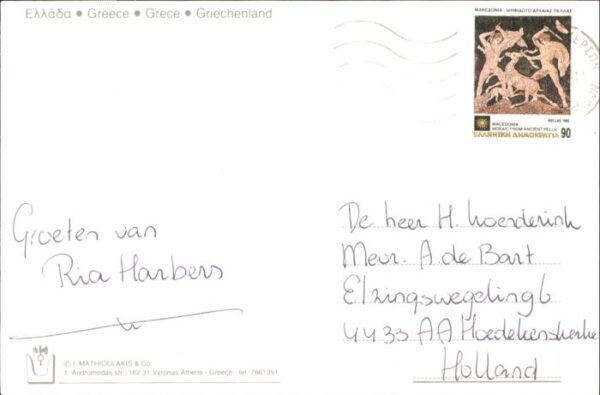 Ελλάδα • Greece • Grece • Griechenland
ΜΑΚΕΔΟΝΙΑ - ΨΗΦΙΔΩΤΟ ΑΡΧΑΙΑΣ ΠΕΛΛΑΣ
HELLAS 1992
MACEDONIA
MOSAIC FROM ANCIENT PELLA
ΕΛΛΗΝΙΚΗ ΔΗΜΟΚΡΑΤΙΑ 90
Groeten van
Ria Harbers
De heer H. Woerderink
Mevr. A. de Bart
Elzingswegeling 6
4433 AA Hoedekenskerke
Holland
© I. MATHIOULAKIS & Co.
1. Andromedas str., 162 31 Vyronas Athens - Greece - tel. 7661351